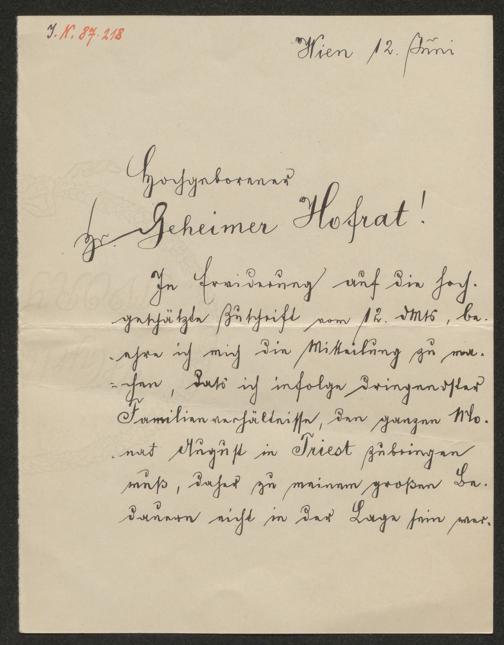 J. N. 87.218
Wien 12. Juni
Hochgeborener
Hr. Geheimer Hofrat!
In Erwiderung auf die hoch-
geschätzte Zuschrift vom 12. dMts, be-
-ehre ich mich die Mitteilung zu ma-
-chen, daß ich infolge dringendster
Familienverhältnisse, den ganzen Mo-
-nat August in Triest zubringen
muß, daher zu meinem großen Be-
dauern nicht in der Lage sein wer-